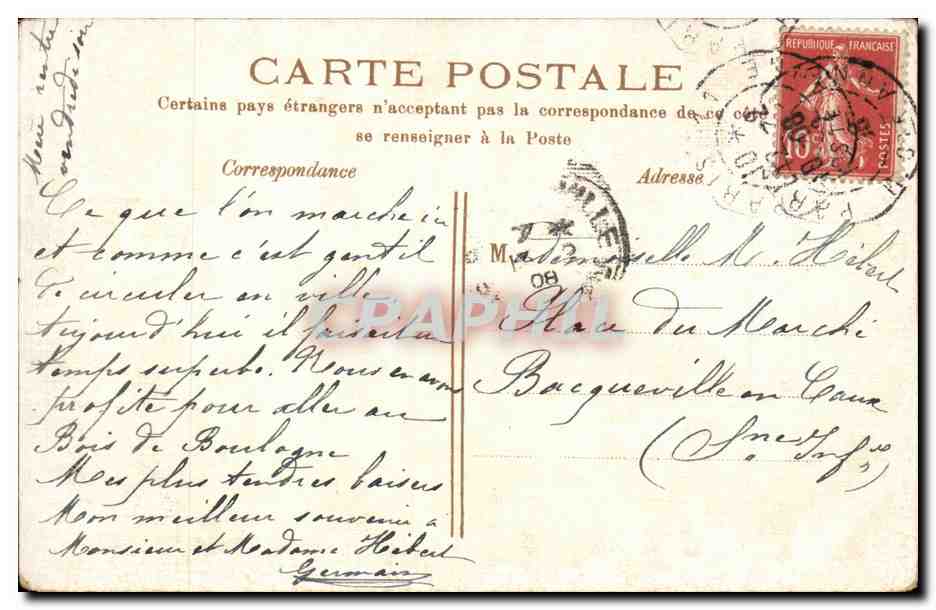 CARTE POSTALE
Certains pays étrangers n'acceptant pas la correspondance de ce côté
se renseigner à la Poste
Correspondance
Adresse
RÉPUBLIQUE FRANÇAISE
10
POSTES
vendredi soir
Ce que l'on marche ici
et comme c'est gentil
de circuler en ville
Aujourd'hui il faisait un
temps superbe. Nous en avons
profité pour aller au
Bois de Boulogne
Mes plus tendres baisers
Mon meilleur souvenir à
Monsieur et Madame Hébert
Germain
Mademoiselle M. Hébert
Place du Marché
Bacqueville en Caux
(Sne Infre)
PARIS
08
CPAPHIL